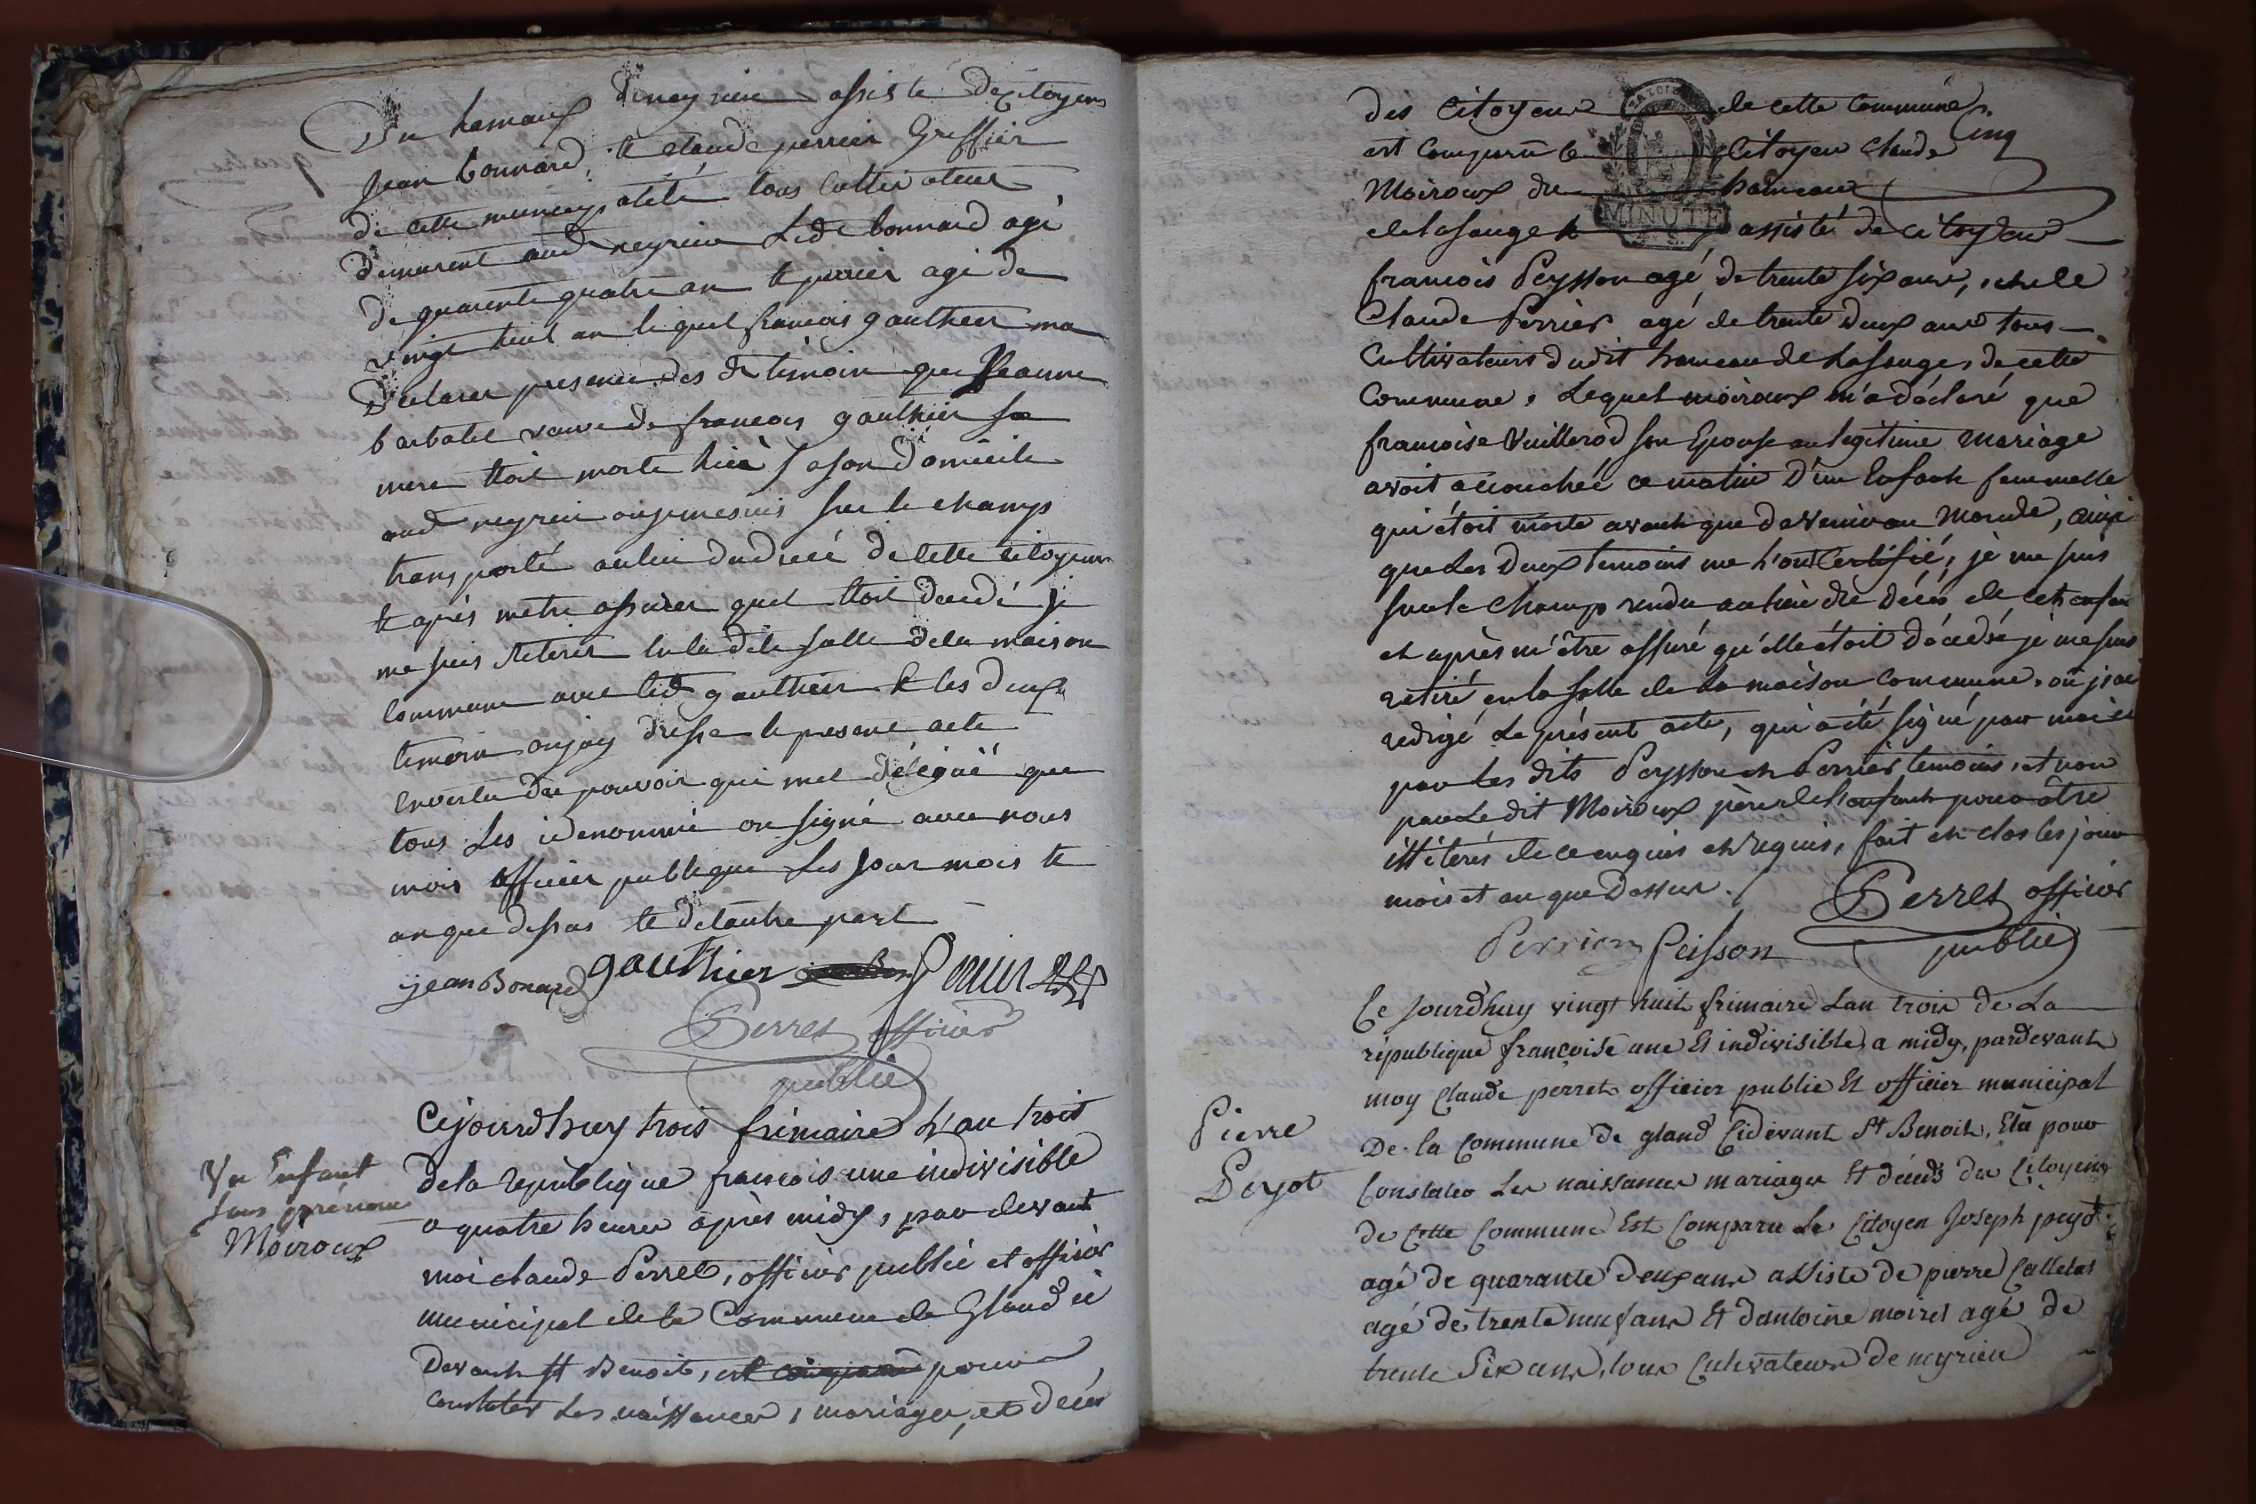 Du hamaux de neyrieu assisté de Citoyens
Jean bonnard, & claude perrier Greffier
de cette municipatité tous Cultivateur
demurent aud neyrieu Led. bonnard agé
de quarente quatre an & perrier agé de
vingt huit an lequel francois gauthier ma
Declarer presence des d. temoin que Jeanne
barbatel veuve de francois gauthier sa
mere ttoit morte hier a son domicile
aud neyrieu ou je me suis sur le champs
transporté au lieu du decé de cette citoyene
& aprés metre assurer quel ttoit decedé je
me suis Retirer en la dite salle de la maison
commune avec led. gauthier & les deux
temoin ou jay dresse le present acte
en vertu du pouvoir qui met délégué que
tous les idenommé on signé avec nous
mois officier publique les jour mois &
an que dessus & de lautre part
jean Bonard gauthier Perrier
Perret officier
public
Un Enfant
sans prénom
Moiroux
Cejourd'huy trois frimaire L'an trois
de la republique francoise une indivisible
a quatre heures après midy, par devant
moi claude Perret, officier public et officier
municipal de la Commune de Gland ci
devant St Benoit, est comparu pour
constater les naissances, mariages, et décès
des citoyens de cette commune
Cinq
est comparu le Citoyen Claude
Moiroux du hameau
de la sauge & assisté de citoyens
francois Peysson agé de trente six ans, et de
Claude Perrier agé de trente deux ans tous
Cultivateurs dudit hameau de La sauge, de cette
Commune, Lequel moiroux m'a déclaré que
francoise Vuillerod son Epouse en legitime mariage
avoit accouchée ce matin D'un Enfant femmelle
qui étoit morte avant que de venir au Monde, ainsi
que les Deux temoins me l'ont Certifié, je me suis
sur le champ rendu au lieu du décès de cet enfant
et après m'être assuré qu'elle étoit décédée je me suis
retiré en la salle de la maison commune, où j'ai
redigé Le présent acte, qui a été signé par moi et
par les dits Peysson et Perrier temoins, et non
par Le dit Moiroux père de l'enfant pour être
illiterés de ce enquis et requis, fait et clos les jour
mois et an que Dessus.
Perret officier
public
Perrier Peisson
Pierre
Peyot
Ce jourd'huy vingt huit frimaire Lan trois de La
république francoise une Et indivisible a midy, pardevant
moy Claude perret officier public Et officier municipal
De la Commune de gland Cidevant St Benoit, Elu pour
Constater Les naissances mariages Et décés des Citoyens
de Cette Commune Est Comparu Le Citoyen Joseph peyot
agé de quarante deux ans assisté de pierre Calletat
agé de trente neuf ans Et dantoine moiret agé de
trente Six ans, tous Cultivateurs de neyrieu
MINUTE